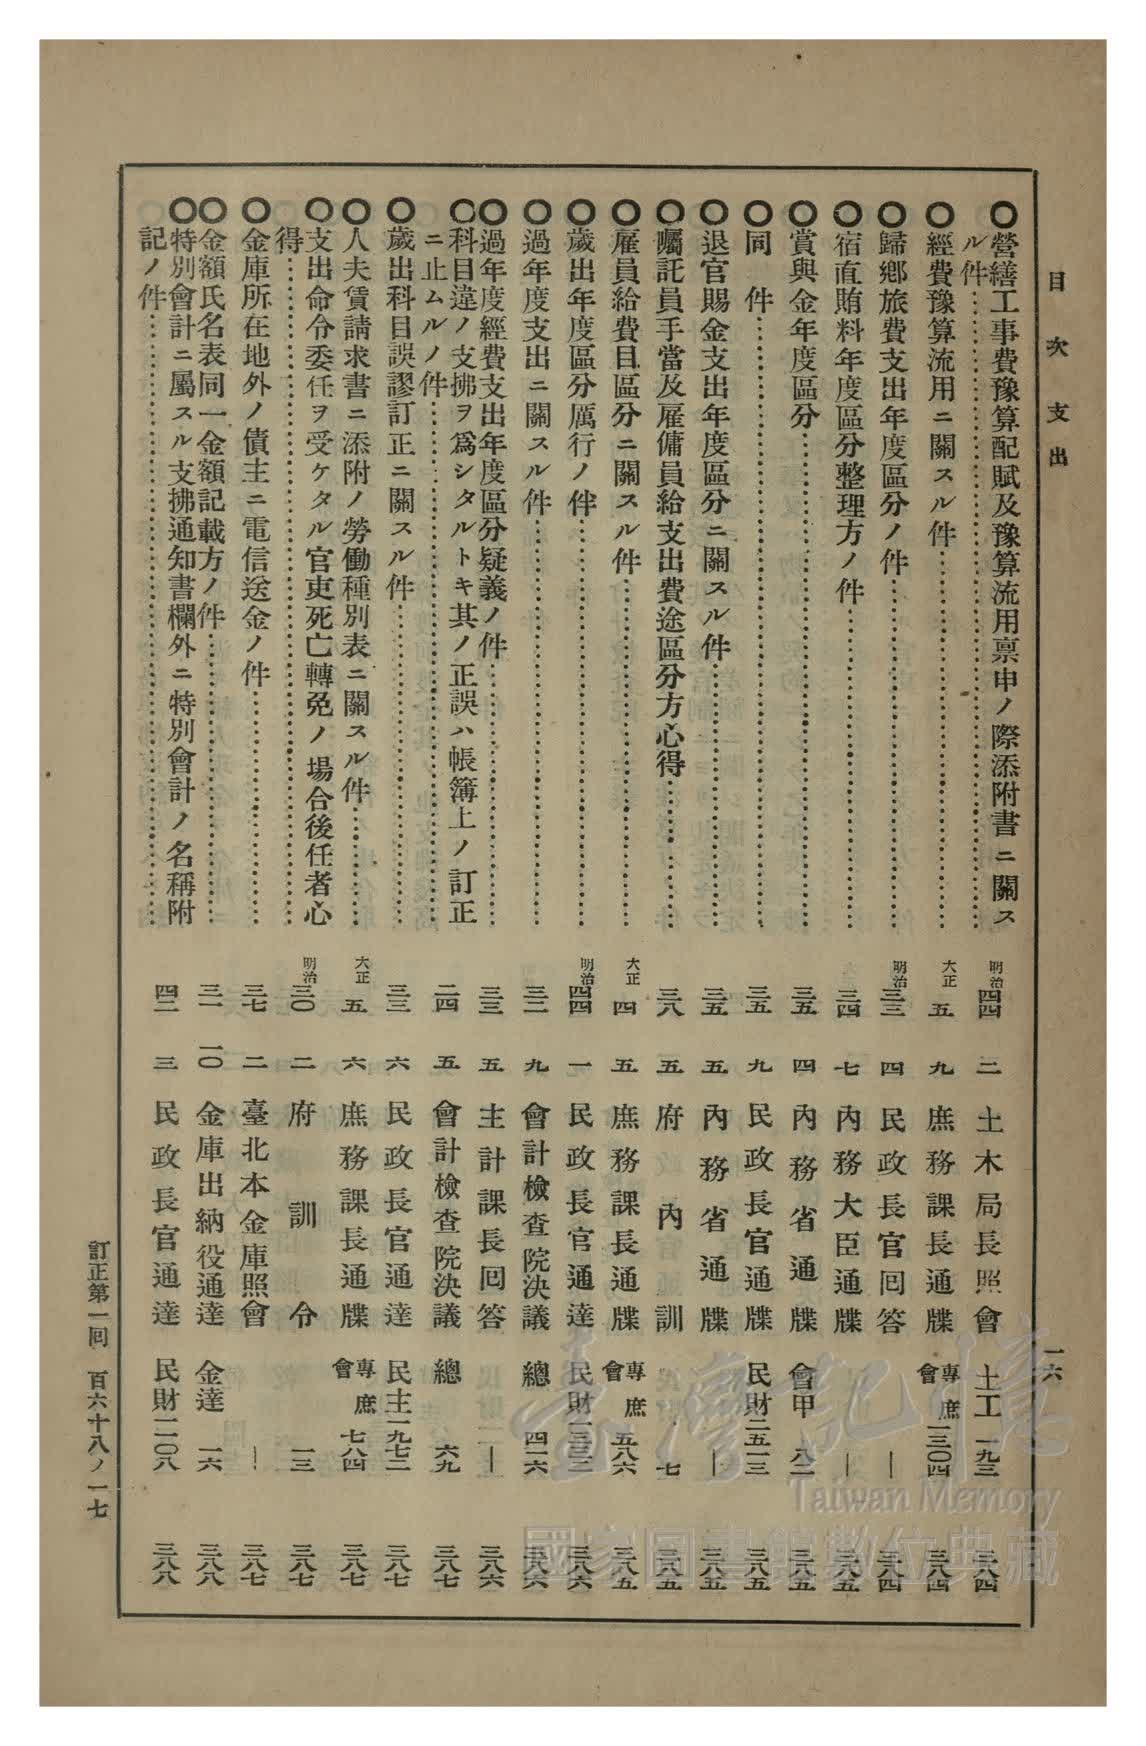 目次 支出
一六
○營繕工事費豫算配賦及豫算流用禀申ノ際添附書ニ關ス
ル件 明治四四 二 土木局長照會 土工一九三 三八四
○經費豫算流用ニ關スル件 大正五 九 庶務課長通牒 專庶會一三〇四 三八四
○歸鄕旅費支出年度區分ノ件 明治三三 四 民政長官回答 — 三八四
○宿直賄料年度區分整理方ノ件 三四 七 內務大臣通牒 — 三八五
○賞與金年度區分 三五 四 內務省通牒 會甲 八二 三八五
○同件 三五 九 民政長官通牒 民財二五一三 三八五
○退官賜金支出年度區分ニ關スル件 三五 五 內務省通牒 — 三八五
○囑託員手當及雇傭員給支出費途區分方心得 三八 五 府內訓 七 三八五
○雇員給費目區分ニ關スル件 大正四 五 庶務課長通牒 專庶會五八六 三八五
○歲出年度區分厲行ノ件 明治四四 一 民政長官通達 民財一三三二 三八六
○過年度支出ニ關スル件 三二 九 會計檢查院決議 總四二六 三八六
○過年度經費支出年度區分疑義ノ件 三三 五 主計課長回答 — 三八六
○科目違ノ支拂ヲ爲シタルトキ其ノ正誤ハ帳簿上ノ訂正
ニ止ムルノ件 二四 五 會計檢查院決議 總 六九 三八七
○歲出科目誤謬訂正ニ關スル件 三三 六 民政長官通達 民主一九七二 三八七
○人夫賃請求書ニ添附ノ勞働種別表ニ關スル件 大正五 六 庶務課長通牒 專庶會七八四 三八七
○支出命令委任ヲ受ケタル官吏死亡轉免ノ場合後任者心
得 明治三〇 二 府訓令 一三 三八七
○金庫所在地外ノ債主ニ電信送金ノ件 三七 二 臺北本金庫照會 — 三八七
○金額氏名表同一金額記載方ノ件 三一 一〇 金庫出納役通達 金達 一六 三八八
○特別會計ニ屬スル支拂通知書欄外ニ特別會計ノ名稱附
記ノ件 四二 三 民政長官通達 民財一二〇八 三八八
訂正第一回 百六十八ノ一七
臺灣記憶
Taiwan Memory
國家圖書館數位典藏